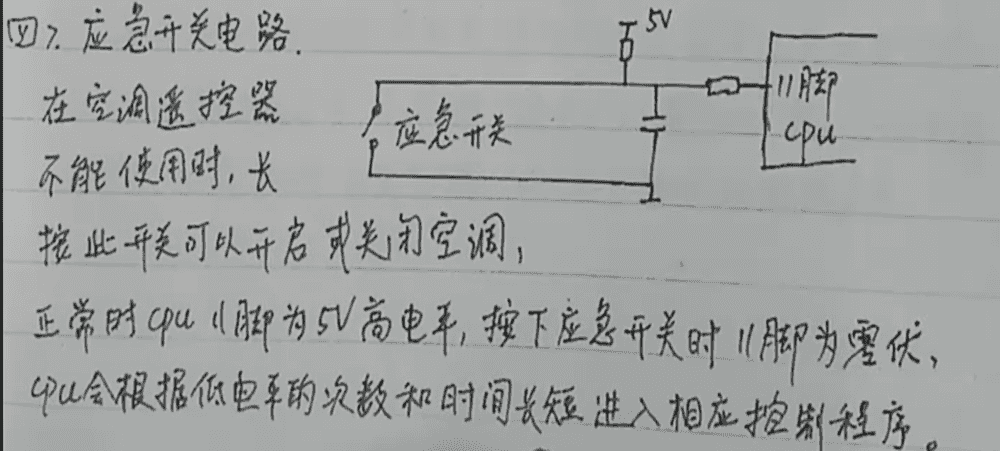 四7. 应急开关电路.
5V
在空调遥控器
11脚
应急开关
cpu
不能使用时，长
按此开关可以开启或关闭空调，
正常时cpu 11脚为5V高电平，按下应急开关时11脚为零伏、
cpu会根据低电平的次数和时间长短进入相应控制程序。